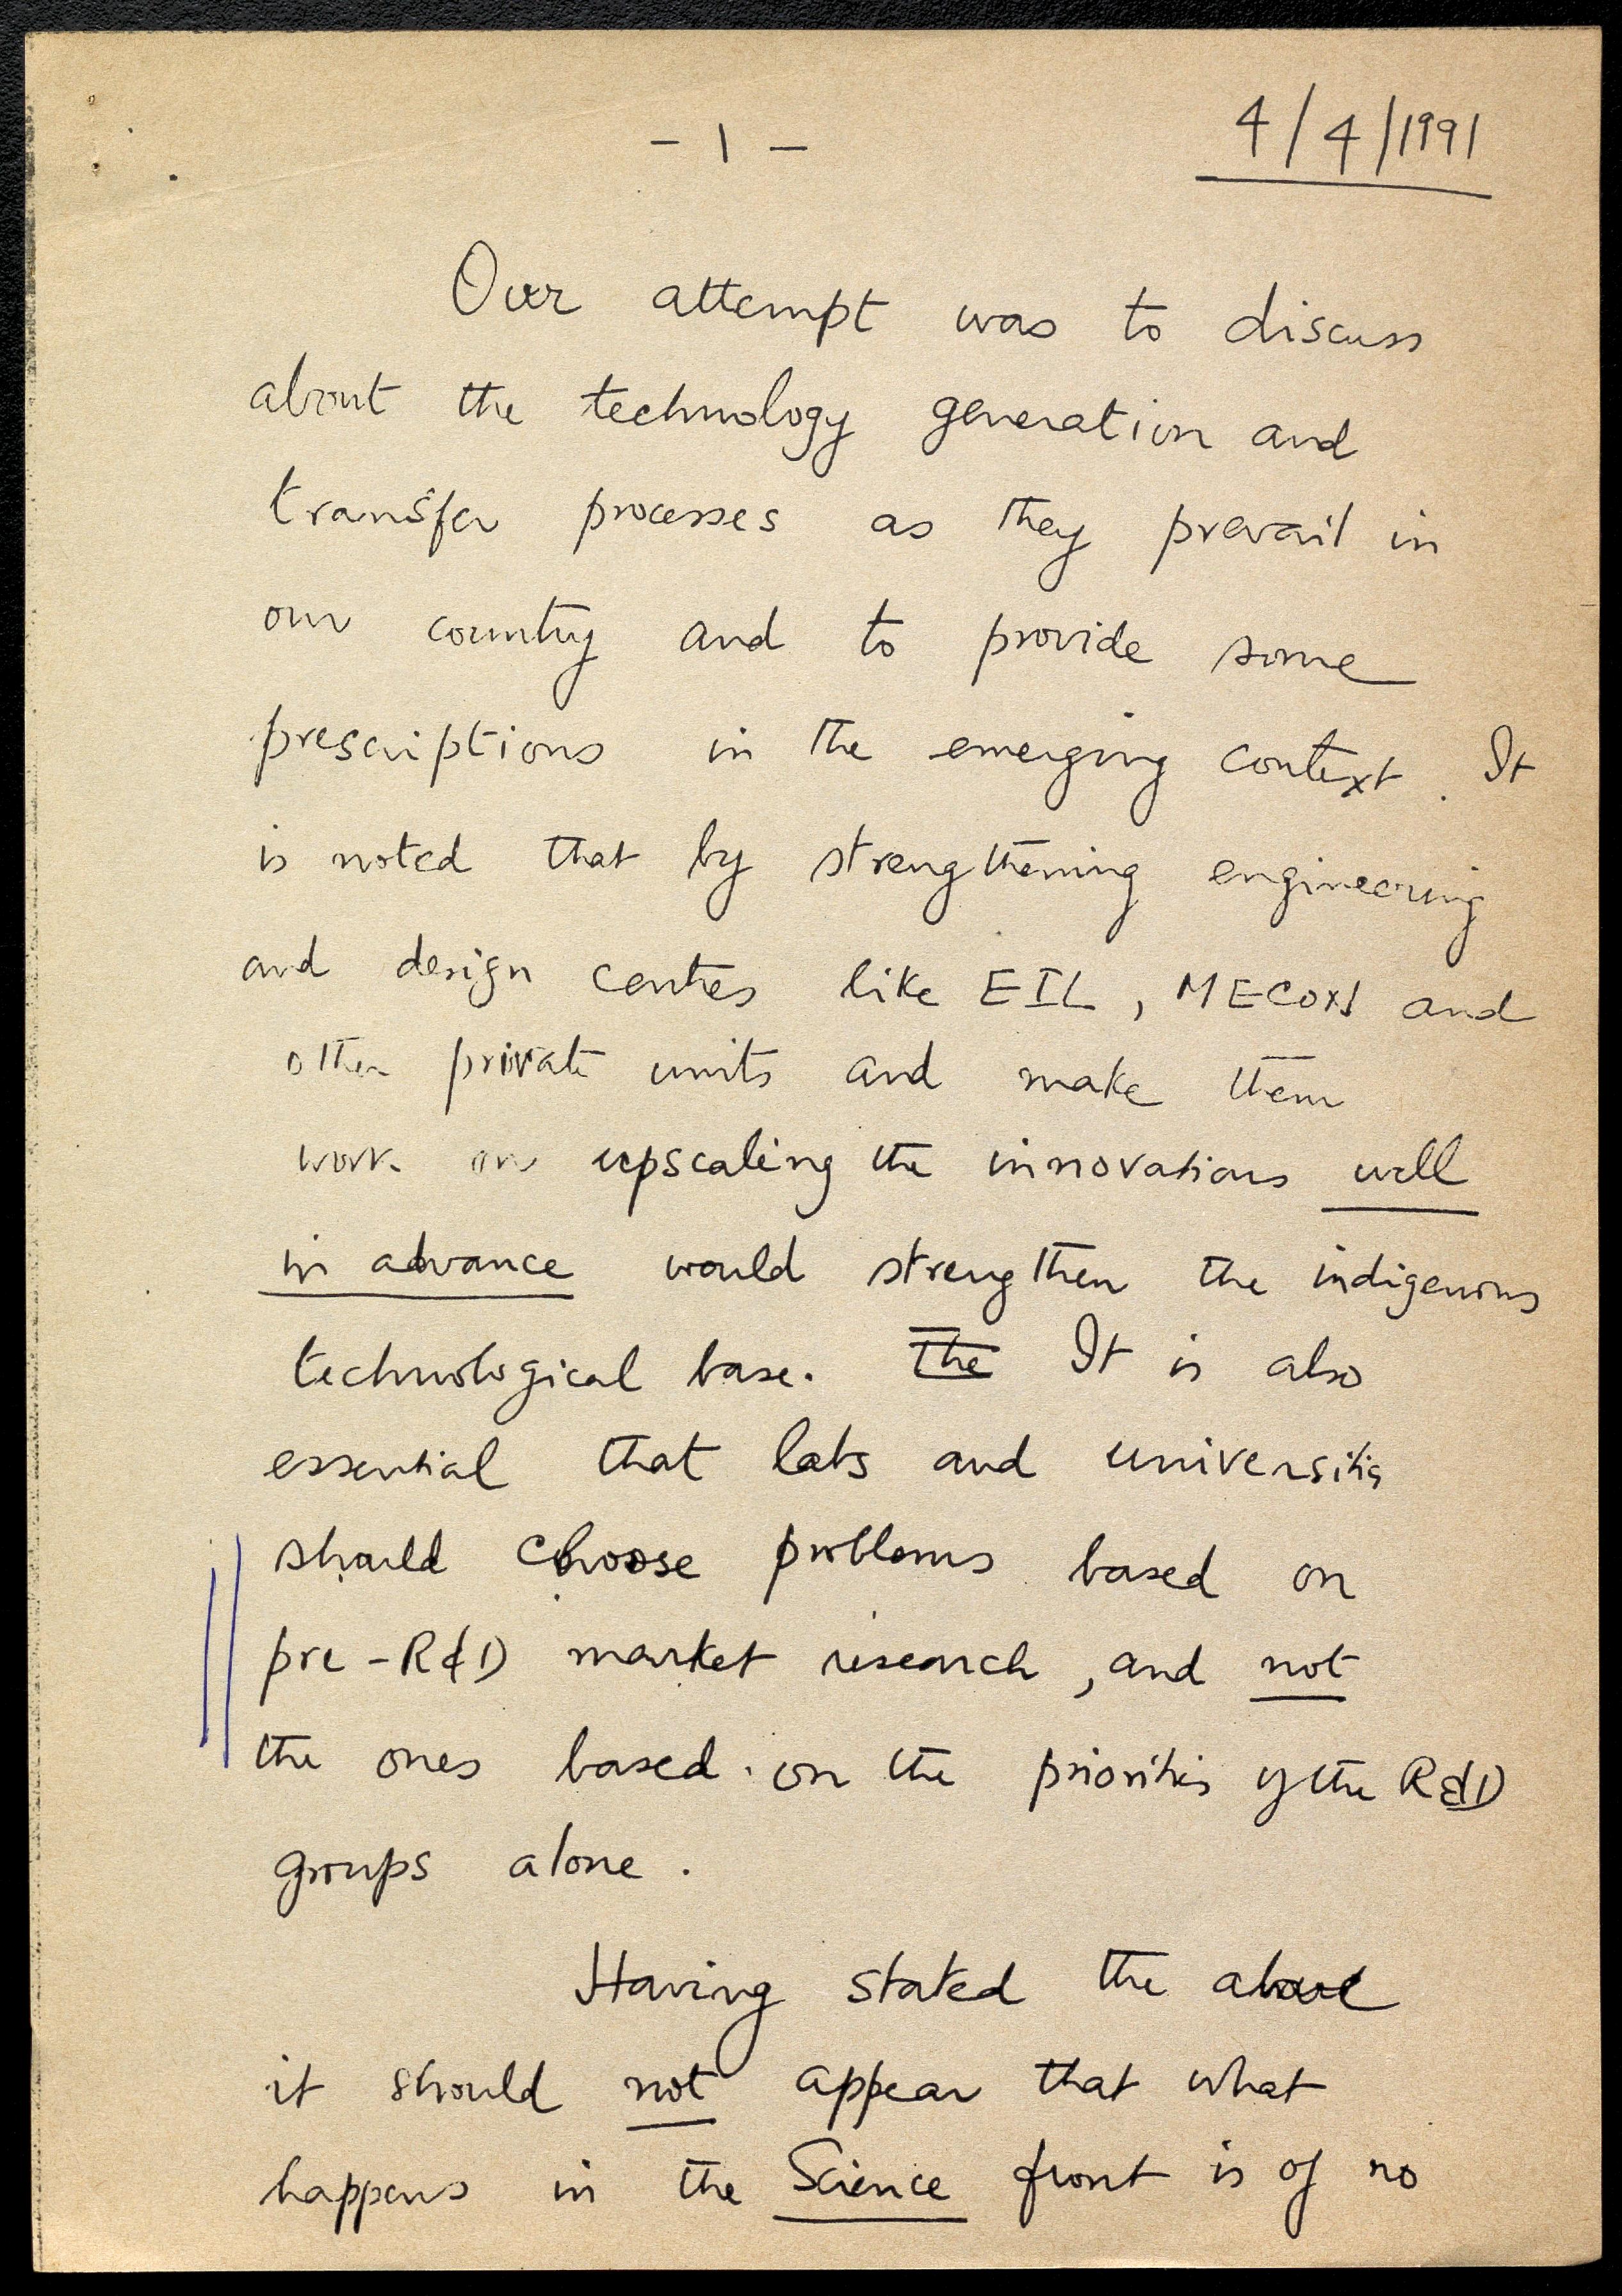 - 1 -
4/4/1991
Our attempt was to discuss
about the technology generation and
transfer processes as they prevail in
our country and to provide some
prescriptions in the emerging context. It
is noted that by strengthening engineering
and design centres like EIL, MECON and
other private units and make them
work on upscaling the innovations well
in advance would strengthen the indigenous
technological base. The It is also
essential that labs and universities
should choose problems based on
pre-R&D market research, and not
the ones based on the priorities of the R&D
groups alone.
Having stated the above
it should not appear that what
happens in the Science front is of no